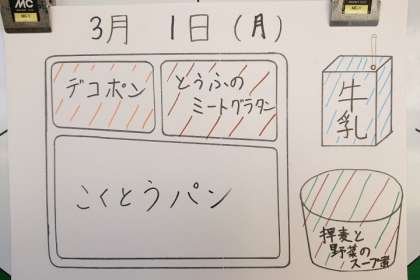 3月 1日 (月)
デコポン
とうふの
ミートグラタン
牛乳
こくとうパン
押麦と
野菜の
スープ煮